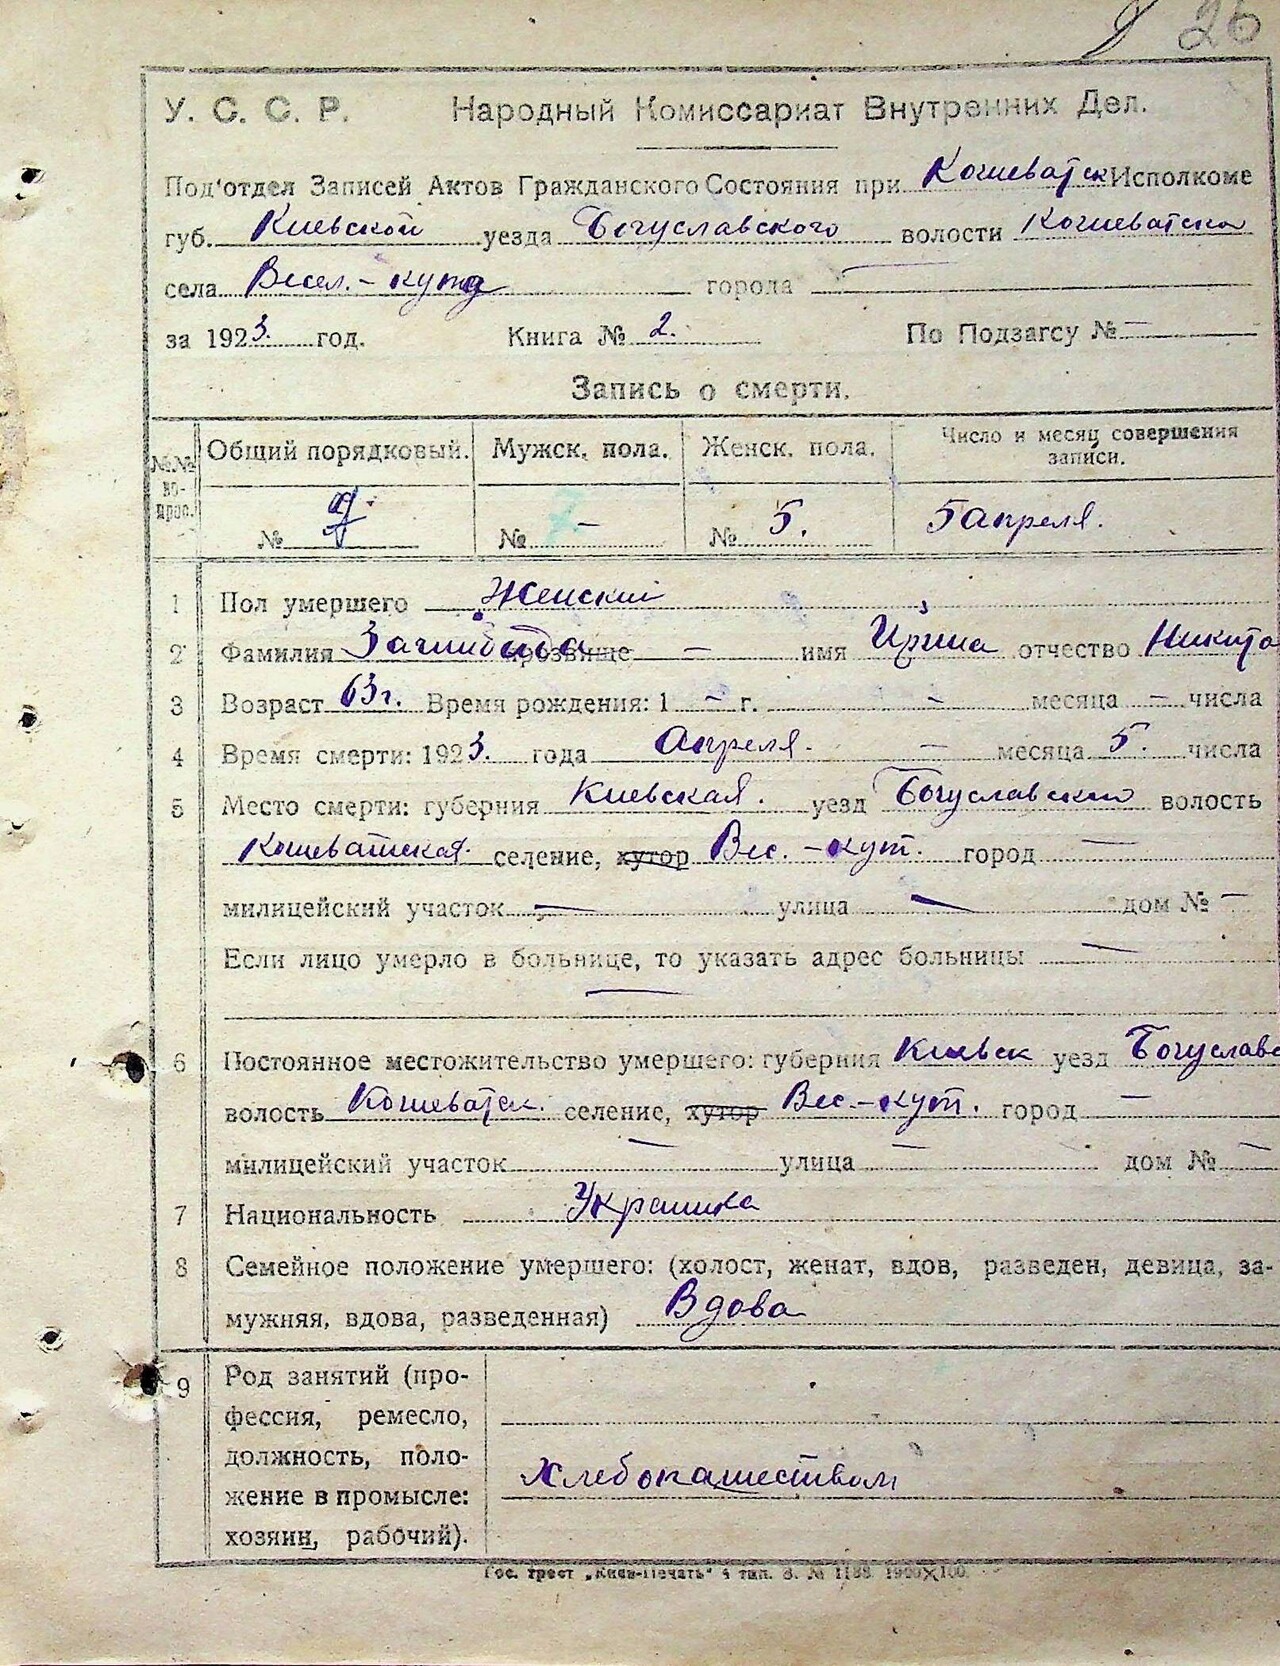 26
У. С. С. Р. Народный Комиссариат Внутренних Дел.
Под'отдел Записей Актов Гражданского Состояния при Кошеватск Исполкоме
губ. Киевской уезда Богуславского волости Кошеватской
села Весел.-кута города —
за 1923. год. Книга № 2. По Подзагсу № —
Запись о смерти.
№№ вопрос. Общий порядковый. Мужск. пола. Женск. пола. Число и месяц совершения записи.
№ № — № 5. 5 апреля.
1 Пол умершего Женский
2 Фамилия прозвище — имя Ирина отчество Никита
3 Возраст 63 г. Время рождения: 1 — г. — месяца — числа
4 Время смерти: 1923. года Апреля. — месяца 5. числа
5 Место смерти: губерния Киевская. уезд Богуславский волость
Кошеватская. селение, хутор Вес.-кут. город —
милицейский участок — улица — дом № —
Если лицо умерло в больнице, то указать адрес больницы —
—
6 Постоянное местожительство умершего: губерния Киевск уезд Богуславс
волость Кошеватск. селение, хутор Вес.-кут. город —
милицейский участок — улица — дом № —
7 Национальность Украинка
8 Семейное положение умершего: (холост, женат, вдов, разведен, девица, за-
мужняя, вдова, разведенная) Вдова
9 Род занятий (про-
фессия, ремесло,
должность, поло-
жение в промысле: Хлебопашеством
хозяин, рабочий).
Гос. трест „Киев-Печать" 4 тип. З. № 1188. 1900×100.